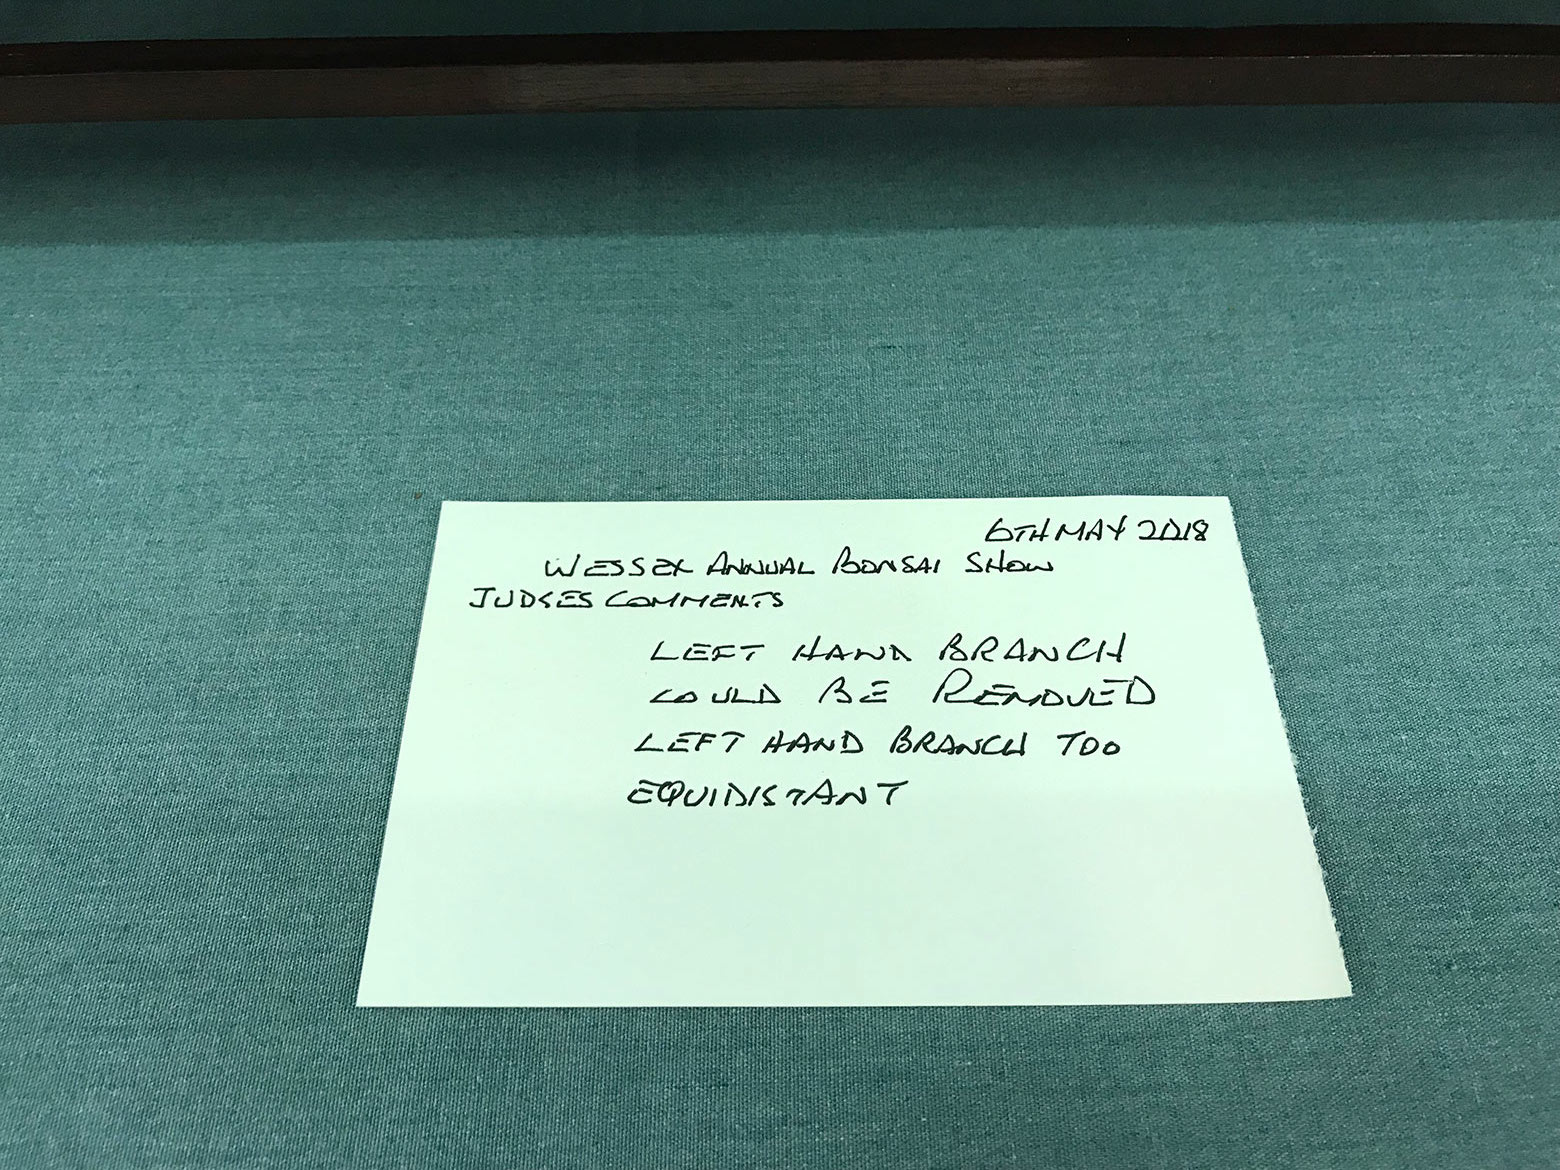 6TH MAY 2018
WESSEX ANNUAL BONSAI SHOW
JUDGES COMMENTS
LEFT HAND BRANCH
COULD BE REMOVED
LEFT HAND BRANCH TOO
EQUIDISTANT